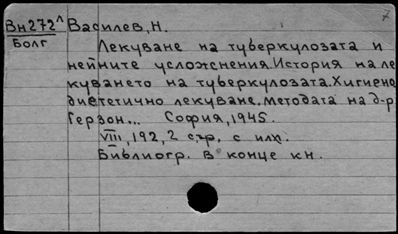 Вн272л Василев, Н.
Болг
Лекуване на туберкулозата и
нейните усложнения. История на ле
куването на туберкулозата. Хигиено
диететично лекуване. Методата на д-р
Герзон... София, 1945.
VIII, 192, 2 стр. с илх.
Библиогр. в конце кн.